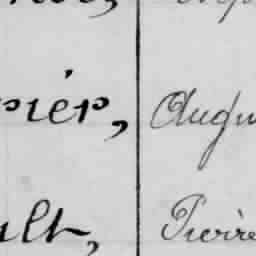 rier, Augu
ult, Pierre